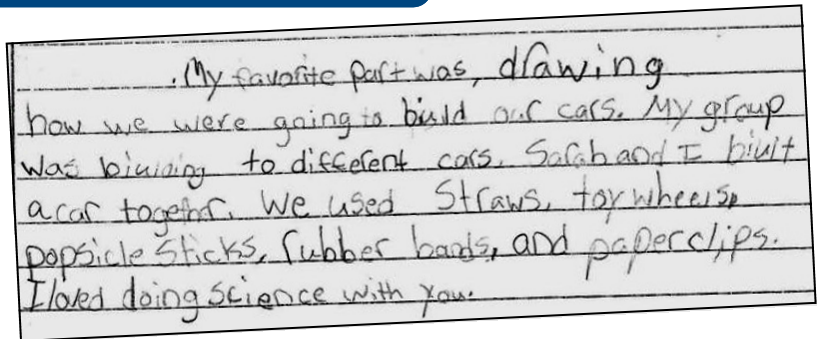 .My favorite part was, drawing
how we were going to biuld our cars. My group
was biuiding to different cars. Sarah and I biuit
a car together. We used Straws, toy wheels,
popsicle sticks, rubber bands, and paperclips.
I loved doing science with you.